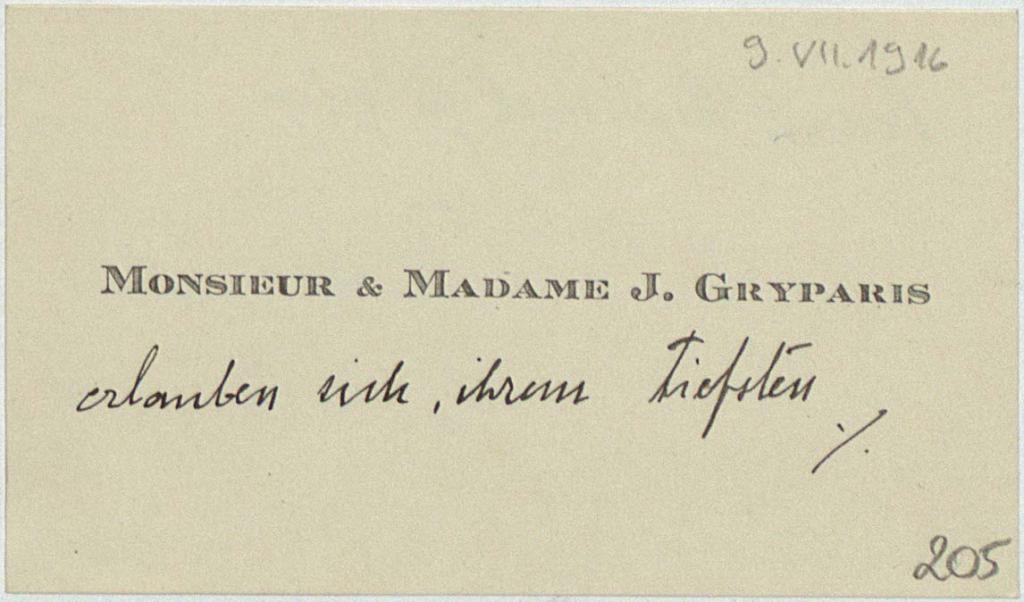 9. VII. 1916
MONSIEUR & MADAME J. GRYPARIS
erlauben sich, ihrem tiefsten
./.
205